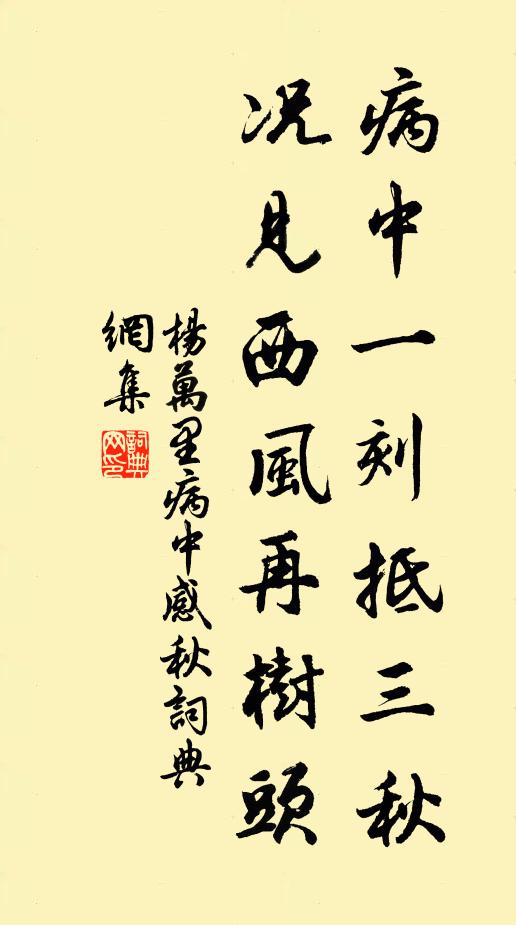 病中一刻抵三秋
况見西風再樹頭
楊萬里病中感秋詞典
網集
詞典
网印